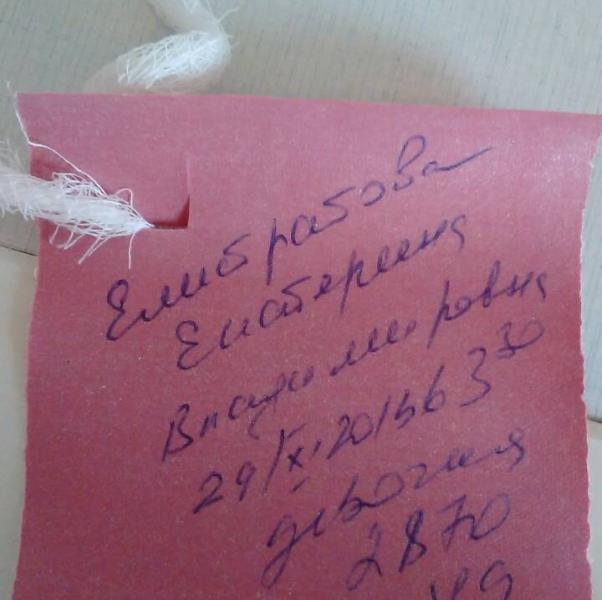 Елистратова
Екатерина
Владимировна
29/XI.2015г в 3 30
девочка
2870
49